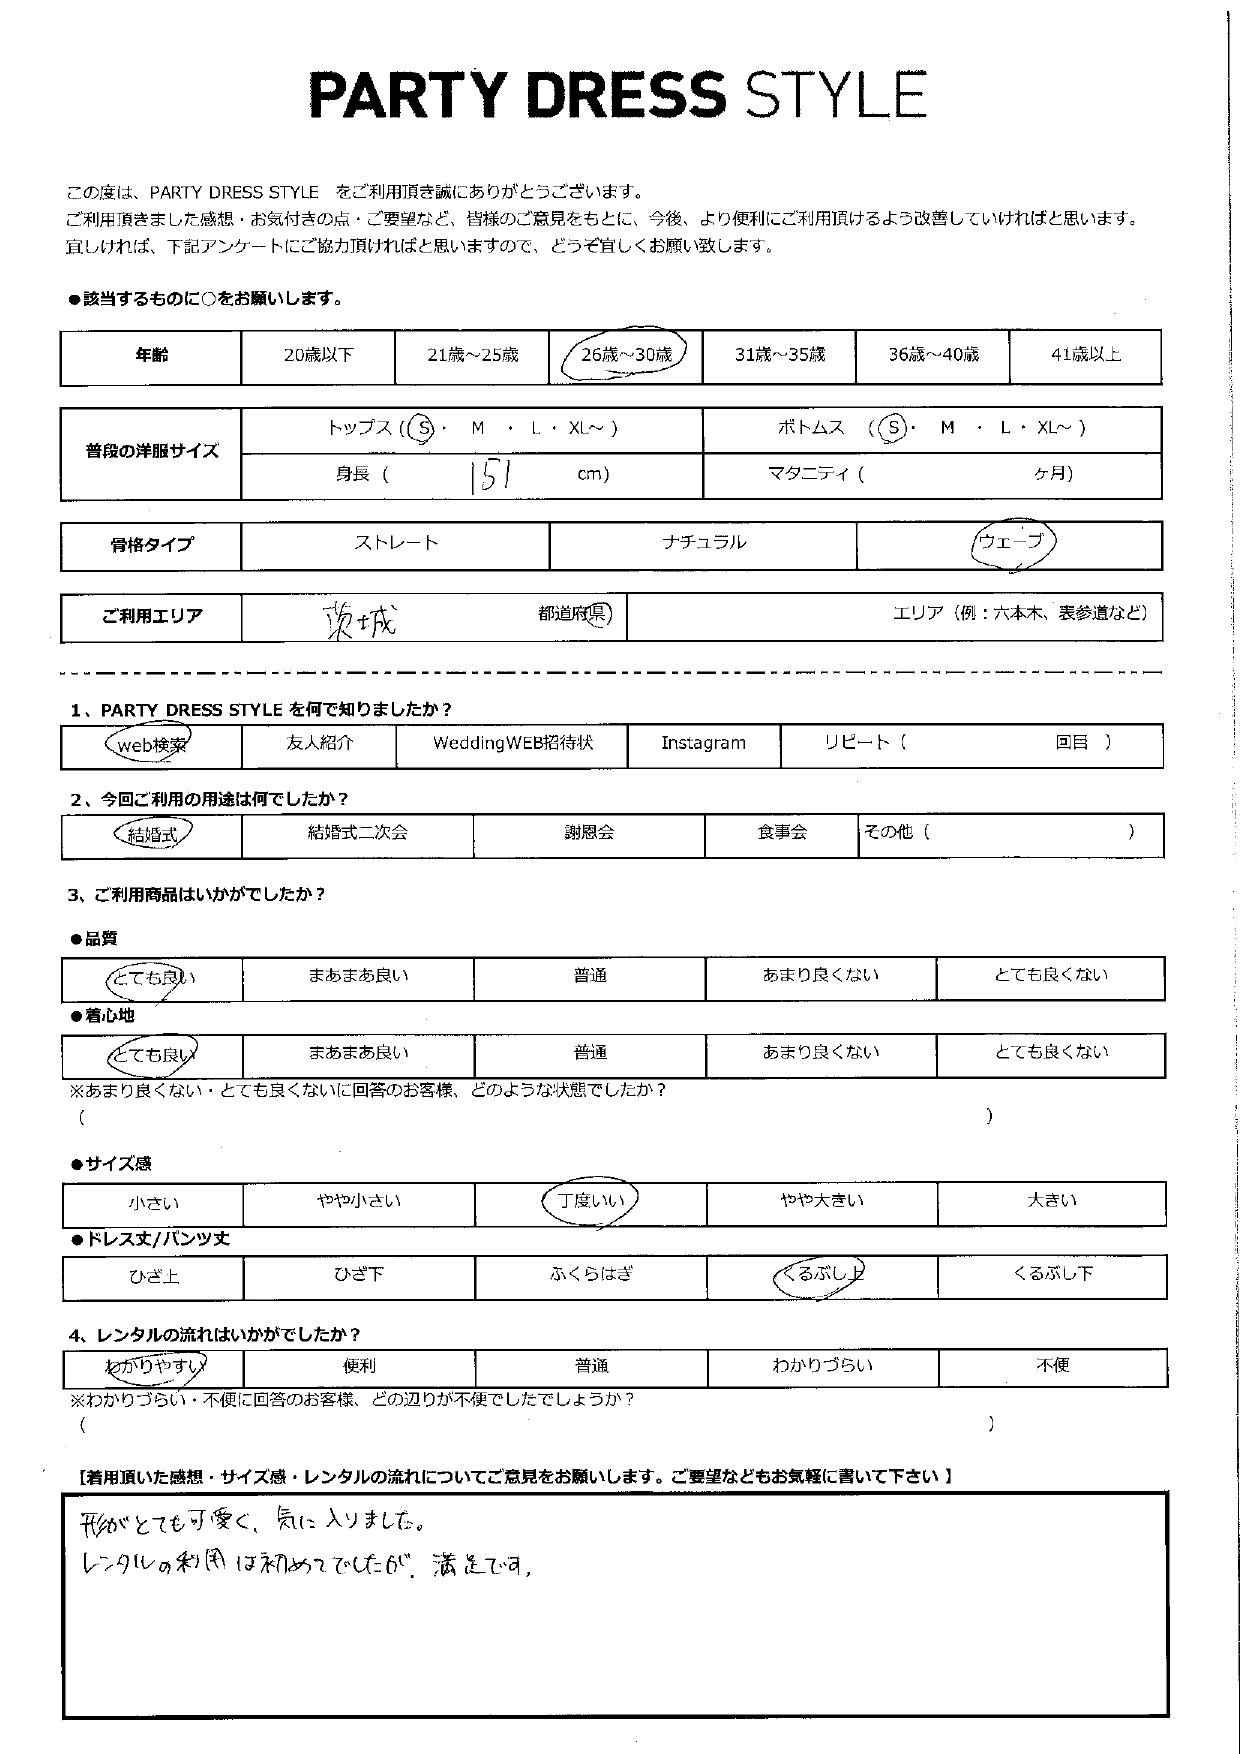 PARTY DRESS STYLE
この度は、PARTY DRESS STYLE をご利用頂き誠にありがとうございます。
ご利用頂きました感想・お気付きの点・ご要望など、皆様のご意見をもとに、今後、より便利にご利用頂けるよう改善していければと思います。
宜しければ、下記アンケートにご協力頂ければと思いますので、どうぞ宜しくお願い致します。
●該当するものに○をお願いします。
年齢 20歳以下 21歳～25歳 26歳～30歳 31歳～35歳 36歳～40歳 41歳以上
普段の洋服サイズ
トップス (S・ M ・ L・ XL～ ) ボトムス (S・ M ・ L・ XL～ )
身長 ( 151 cm) マタニティ ( ヶ月)
骨格タイプ ストレート ナチュラル ウェーブ
ご利用エリア 茨城 都道府県) エリア（例：六本木、表参道など）
1、PARTY DRESS STYLE を何で知りましたか？
web検索 友人紹介 WeddingWEB招待状 Instagram リピート ( 回目 )
2、今回ご利用の用途は何でしたか？
結婚式 結婚式二次会 謝恩会 食事会 その他 ( )
3、ご利用商品はいかがでしたか？
●品質
とても良い まあまあ良い 普通 あまり良くない とても良くない
●着心地
とても良い まあまあ良い 普通 あまり良くない とても良くない
※あまり良くない・とても良くないに回答のお客様、どのような状態でしたか？
( )
●サイズ感
小さい やや小さい 丁度いい やや大きい 大きい
●ドレス丈/パンツ丈
ひざ上 ひざ下 ふくらはぎ くるぶし上 くるぶし下
4、レンタルの流れはいかがでしたか？
わかりやすい 便利 普通 わかりづらい 不便
※わかりづらい・不便に回答のお客様、どの辺りが不便でしたでしょうか？
( )
【着用頂いた感想・サイズ感・レンタルの流れについてご意見をお願いします。ご要望などもお気軽に書いて下さい 】
形がとても可愛く、気に入りました。
レンタルの利用は初めてでしたが、満足です。